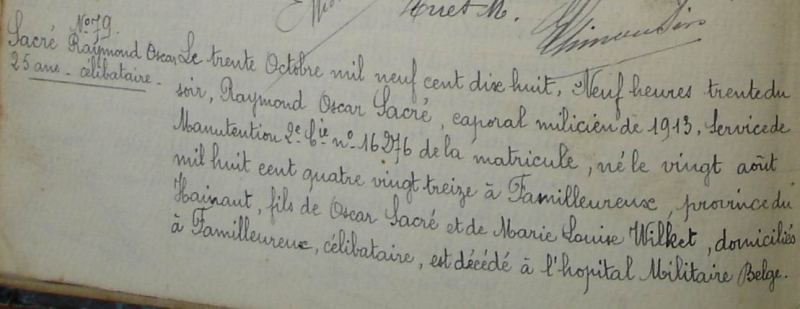 Huet M.
N° 79.
Sacré Raymond Oscar
25 ans - célibataire -
Le trente Octobre mil neuf cent dix huit, Neuf heures trente du
soir, Raymond Oscar Sacré, caporal milicien de 1913, Service de
Manutention 2e Cie n° 16276 de la matricule, né le vingt août
mil huit cent quatre vingt treize à Familleureux, province du
Hainaut, fils de Oscar Sacré et de Marie Louise Wilket, domiciliés
à Familleureux, célibataire, est décédé à l'hopital Militaire Belge.